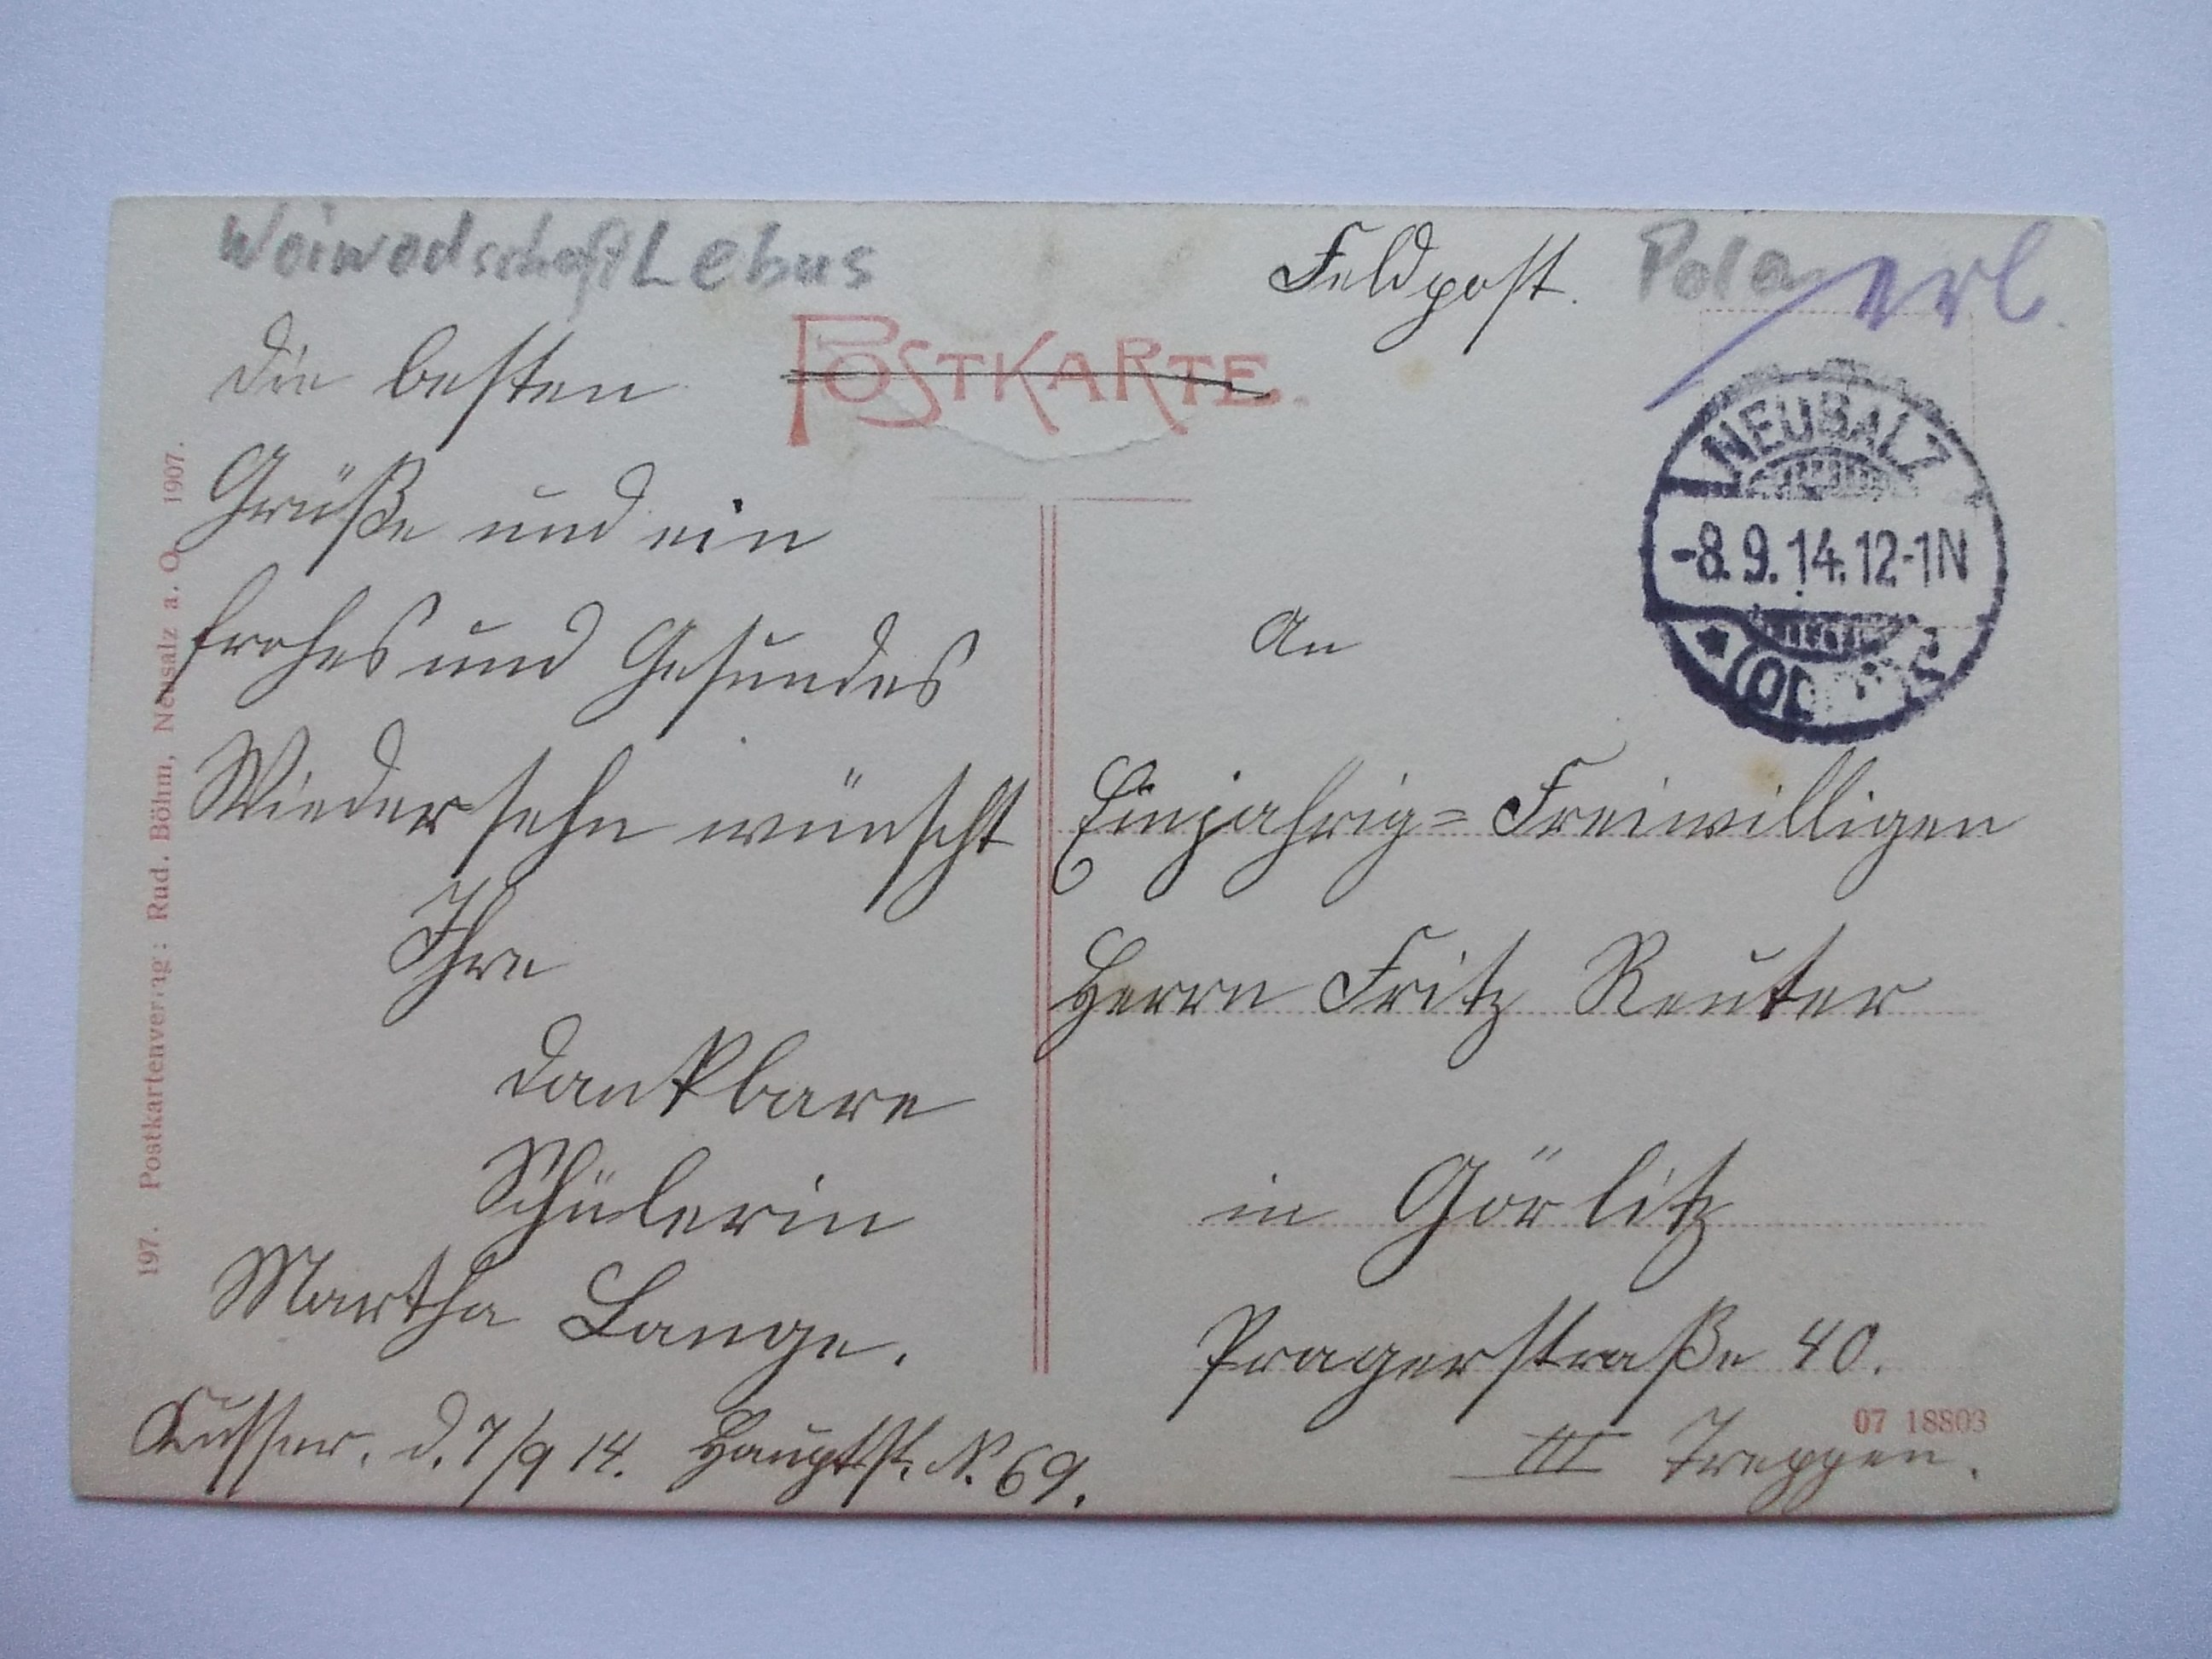 Woiwodschaft Lebus
Feldpost.
erl.
POSTKARTE.
die besten
Grüße und ein
frohes und Gesundes
Wiedersehn wünscht
Ihre
dankbare
Schülerin
Martha Lange.
Kusser, d. 7/9 14. Hauptst. N. 69.
NEUSALZ
-8.9.14.12-1N
An
Einjahrig=Freiwilligen
Herrn Fritz Reuter
in Görlitz
Pragerstraße 40.
III Treppen.
07 18803
197. Postkartenverlag: Rud. Böhm, Neusalz a. O. 1907.